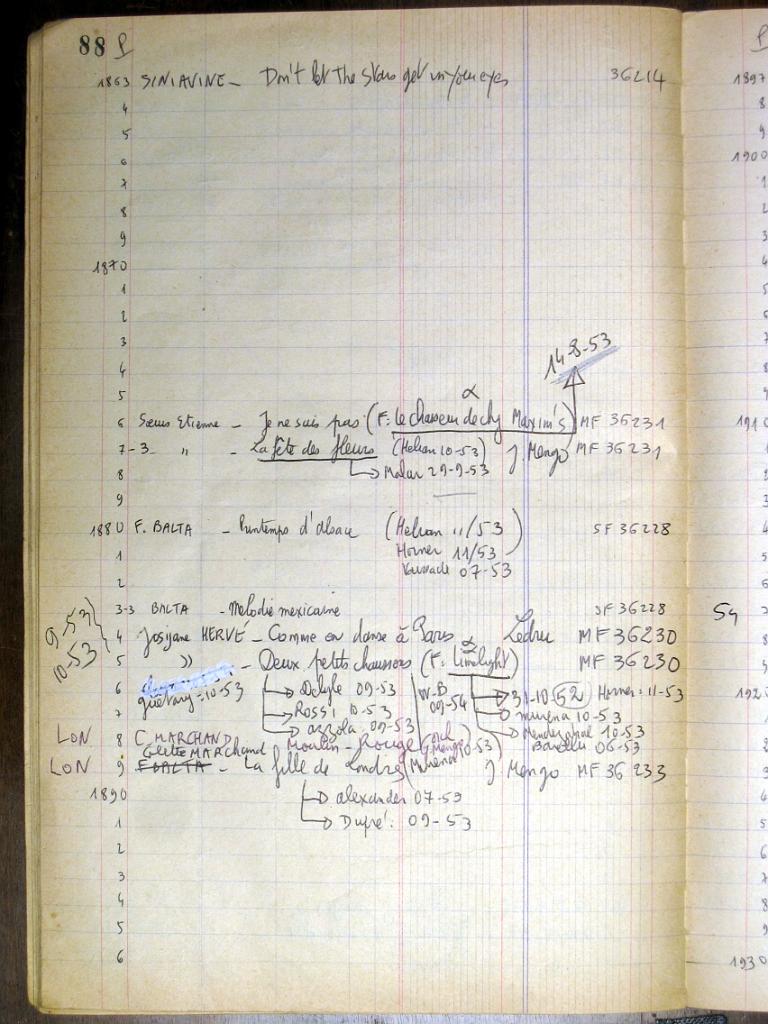 88 P
1863 SINIAVINE - Don't let the stars get in your eyes 36214
4
5
6
7
8
9
1870
1
2
3
4
14-8-53
5
α
6 Sœurs Etienne - Je ne sais pas (F: Le chasseur de chez Maxim's) MF 36231
7-3 " - La fête des fleurs (Helian 10-53) J. Mengo MF 36231
8 Malar 29-9-53
9
1880 F. BALTA - Printemps d'alsace (Helian 11/53) SF 36228
1 Horner 11/53
2 07-53
3-3 BALTA - Mélodie mexicaine SF 36228
9-53
10-53
4 Josyane HERVÉ - Comme on danse à Paris Ledru MF 36230
α
5 " - Deux petits chaussons (F: Limelight) MF 36230
6 guétary = 10-53 Delyle 09-53 W-B 09-54 31-10-52 Horner: 11-53
7 Rossi 10-53 murena 10-53
azzola 09-53 10-53
LON 8 C MARCHAND Moulin-Rouge 06-53
Colette MARChand
LON 9 F BALTA - La fille de Londres (Murena 10-53) J Mengo MF 36 233
1890 alexander 07-53
1 Dupré: 09-53
2
3
4
5
6
P
1897
8
9
1900
1
2
3
4
5
6
7
8
9
1910
54
1920
1930